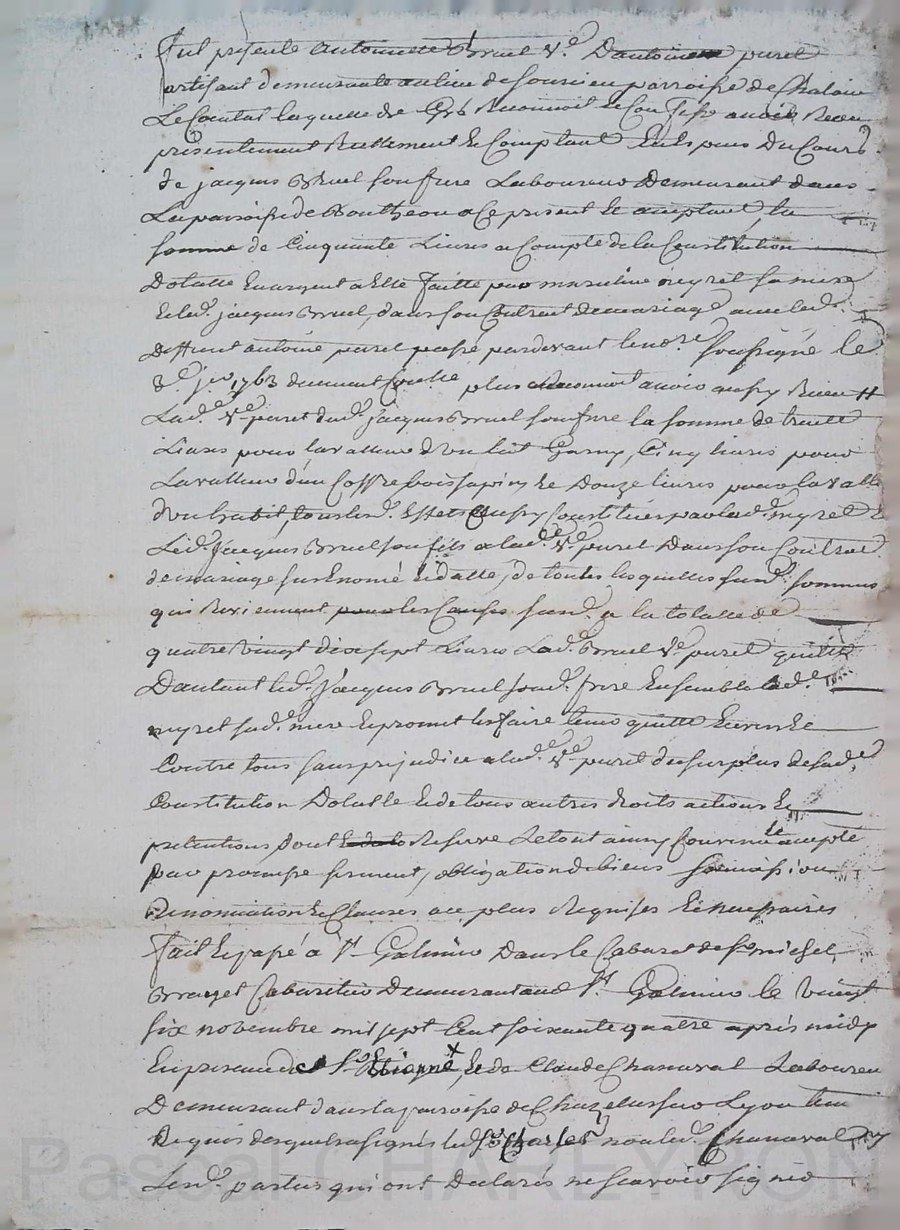 fut presente Antoinette Bruel v.e D'antoine puret
artisant demeurante au lieu de parroisse de Chalain
Le Comtal laquelle de Gré Reconnoit et Confesse avoir Receu
presentement Reellement et Comptant Eu Et puis Du Cours
de jacques Bruel son frere Laboureur Demeurant dans
La paroisse de Bontheon a Ce present et acceptant la
somme de Cinquante Livres a Compte de la Constitution
Dotalle En argent a Elle faitte par meyret sa mere
Et led. jacques Bruel, dans son Contract de mariage avec led.
Deffunt antoine puret passé pardevant le no.re soussigné le
8.e 1763 duement plus reconnoit avoir aussy Receu
Lad.e v.e puret dud. jacques Bruel son frere la somme de trente
Livres pour la valleur d'un Lit Garny, Cinq livres pour
La valleur d'un Coffre bois sapin, et Douze livres pour la valleur
d'un habit, tous lesd. Effets aussy Constitués par lad. meyret Et
Led. Jacques Bruel son fils a lad.e v.e puret Dans son Contract
de mariage sus Enomé Et datte, de toutes lesquelles susd. sommes
qui Reviennent pour les Causes susd. a la totalle de
quatre vingt dix sept Livres Lad. Bruel v.e puret quitte
D'autant led. Jacques Bruel sond. frere Ensemble lad.e
meyret sad.e mere Et promet les faire tenir quitte Envers Et
Contre tous sans prejudice a lad.e v.e puret du surplus de sad.e
Constitution Dotalle Et de tous autres droits actions Et
pretentions, dont Reserve Le tout ainsy Convenu et accepté
par promesse serment, obligation de biens soumission
Renonciation Et Clauses a ce plus Requises Et necessaires
Fait Et passé a S.t Galmier Dans le Cabaret de S.r michel
Cabaretier Demeurant aud. S.t Galmier le vingt
six novembre mil sept Cent soixante quatre après midy
En presence de S.r Etienne x, Et de Claude Chanaval Laboureur
Demeurant dans la paroisse de Chazelles sur Lyon
Requis desquels a signés led. S.r Charles non led. Chanaval ny
Lesd. parties qui ont Declarés ne scavoir signer
Pascal CHAREYRON